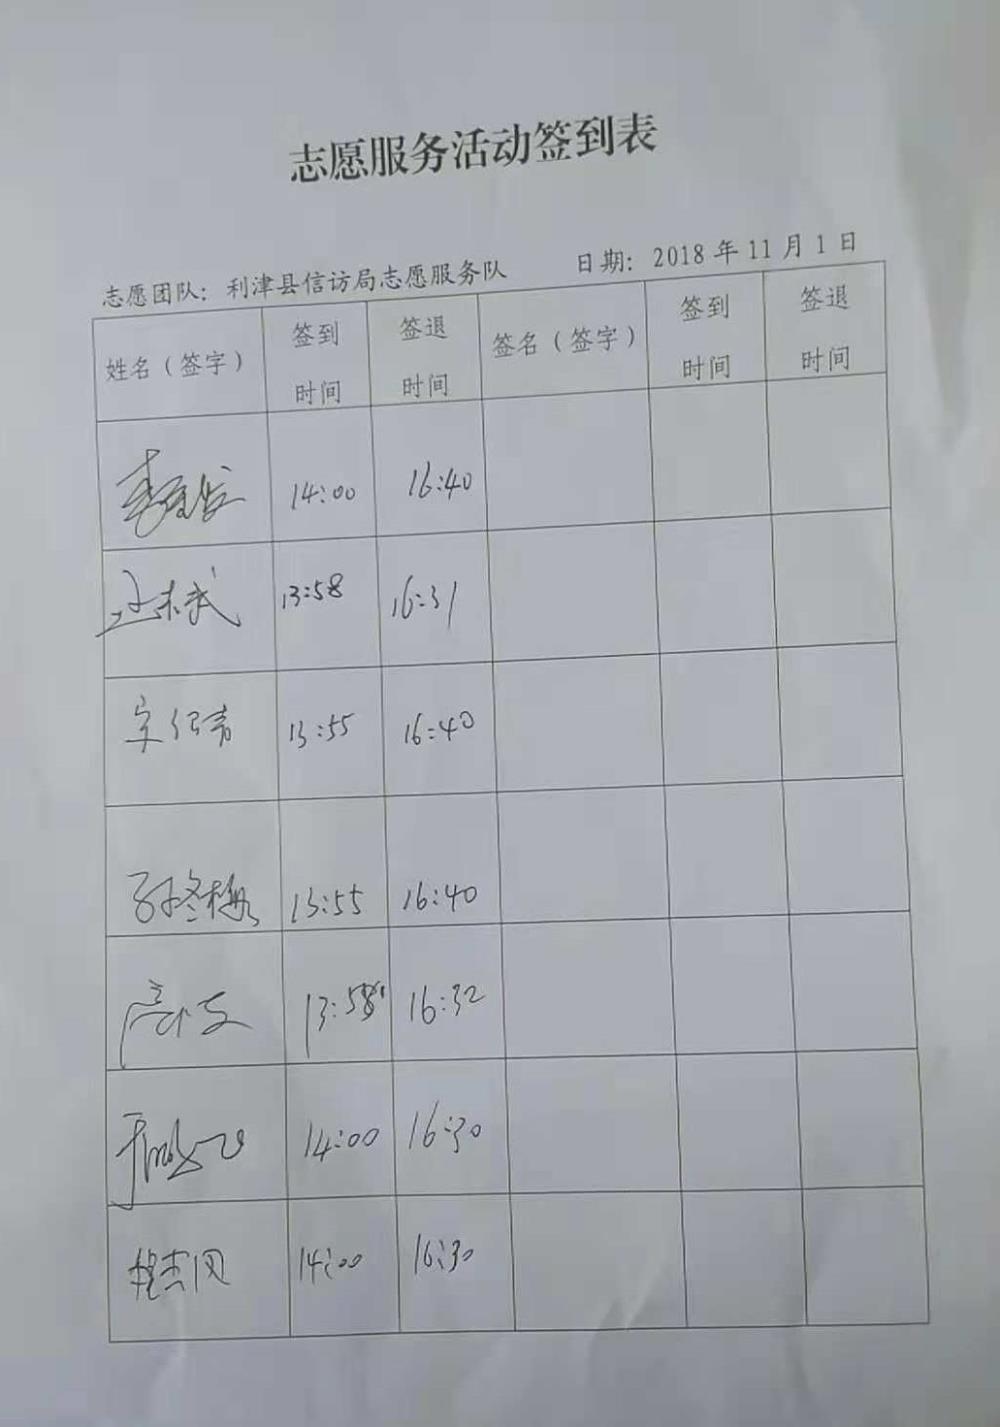 志愿服务活动签到表
志愿团队：利津县信访局志愿服务队 日期：2018年11月1日
姓名（签字） 签到时间 签退时间 签名（签字） 签到时间 签退时间
14:00 16:40
13:58 16:31
13:55 16:40
孙冬梅 13:55 16:40
13:58 16:32
14:00 16:30
14:00 16:30